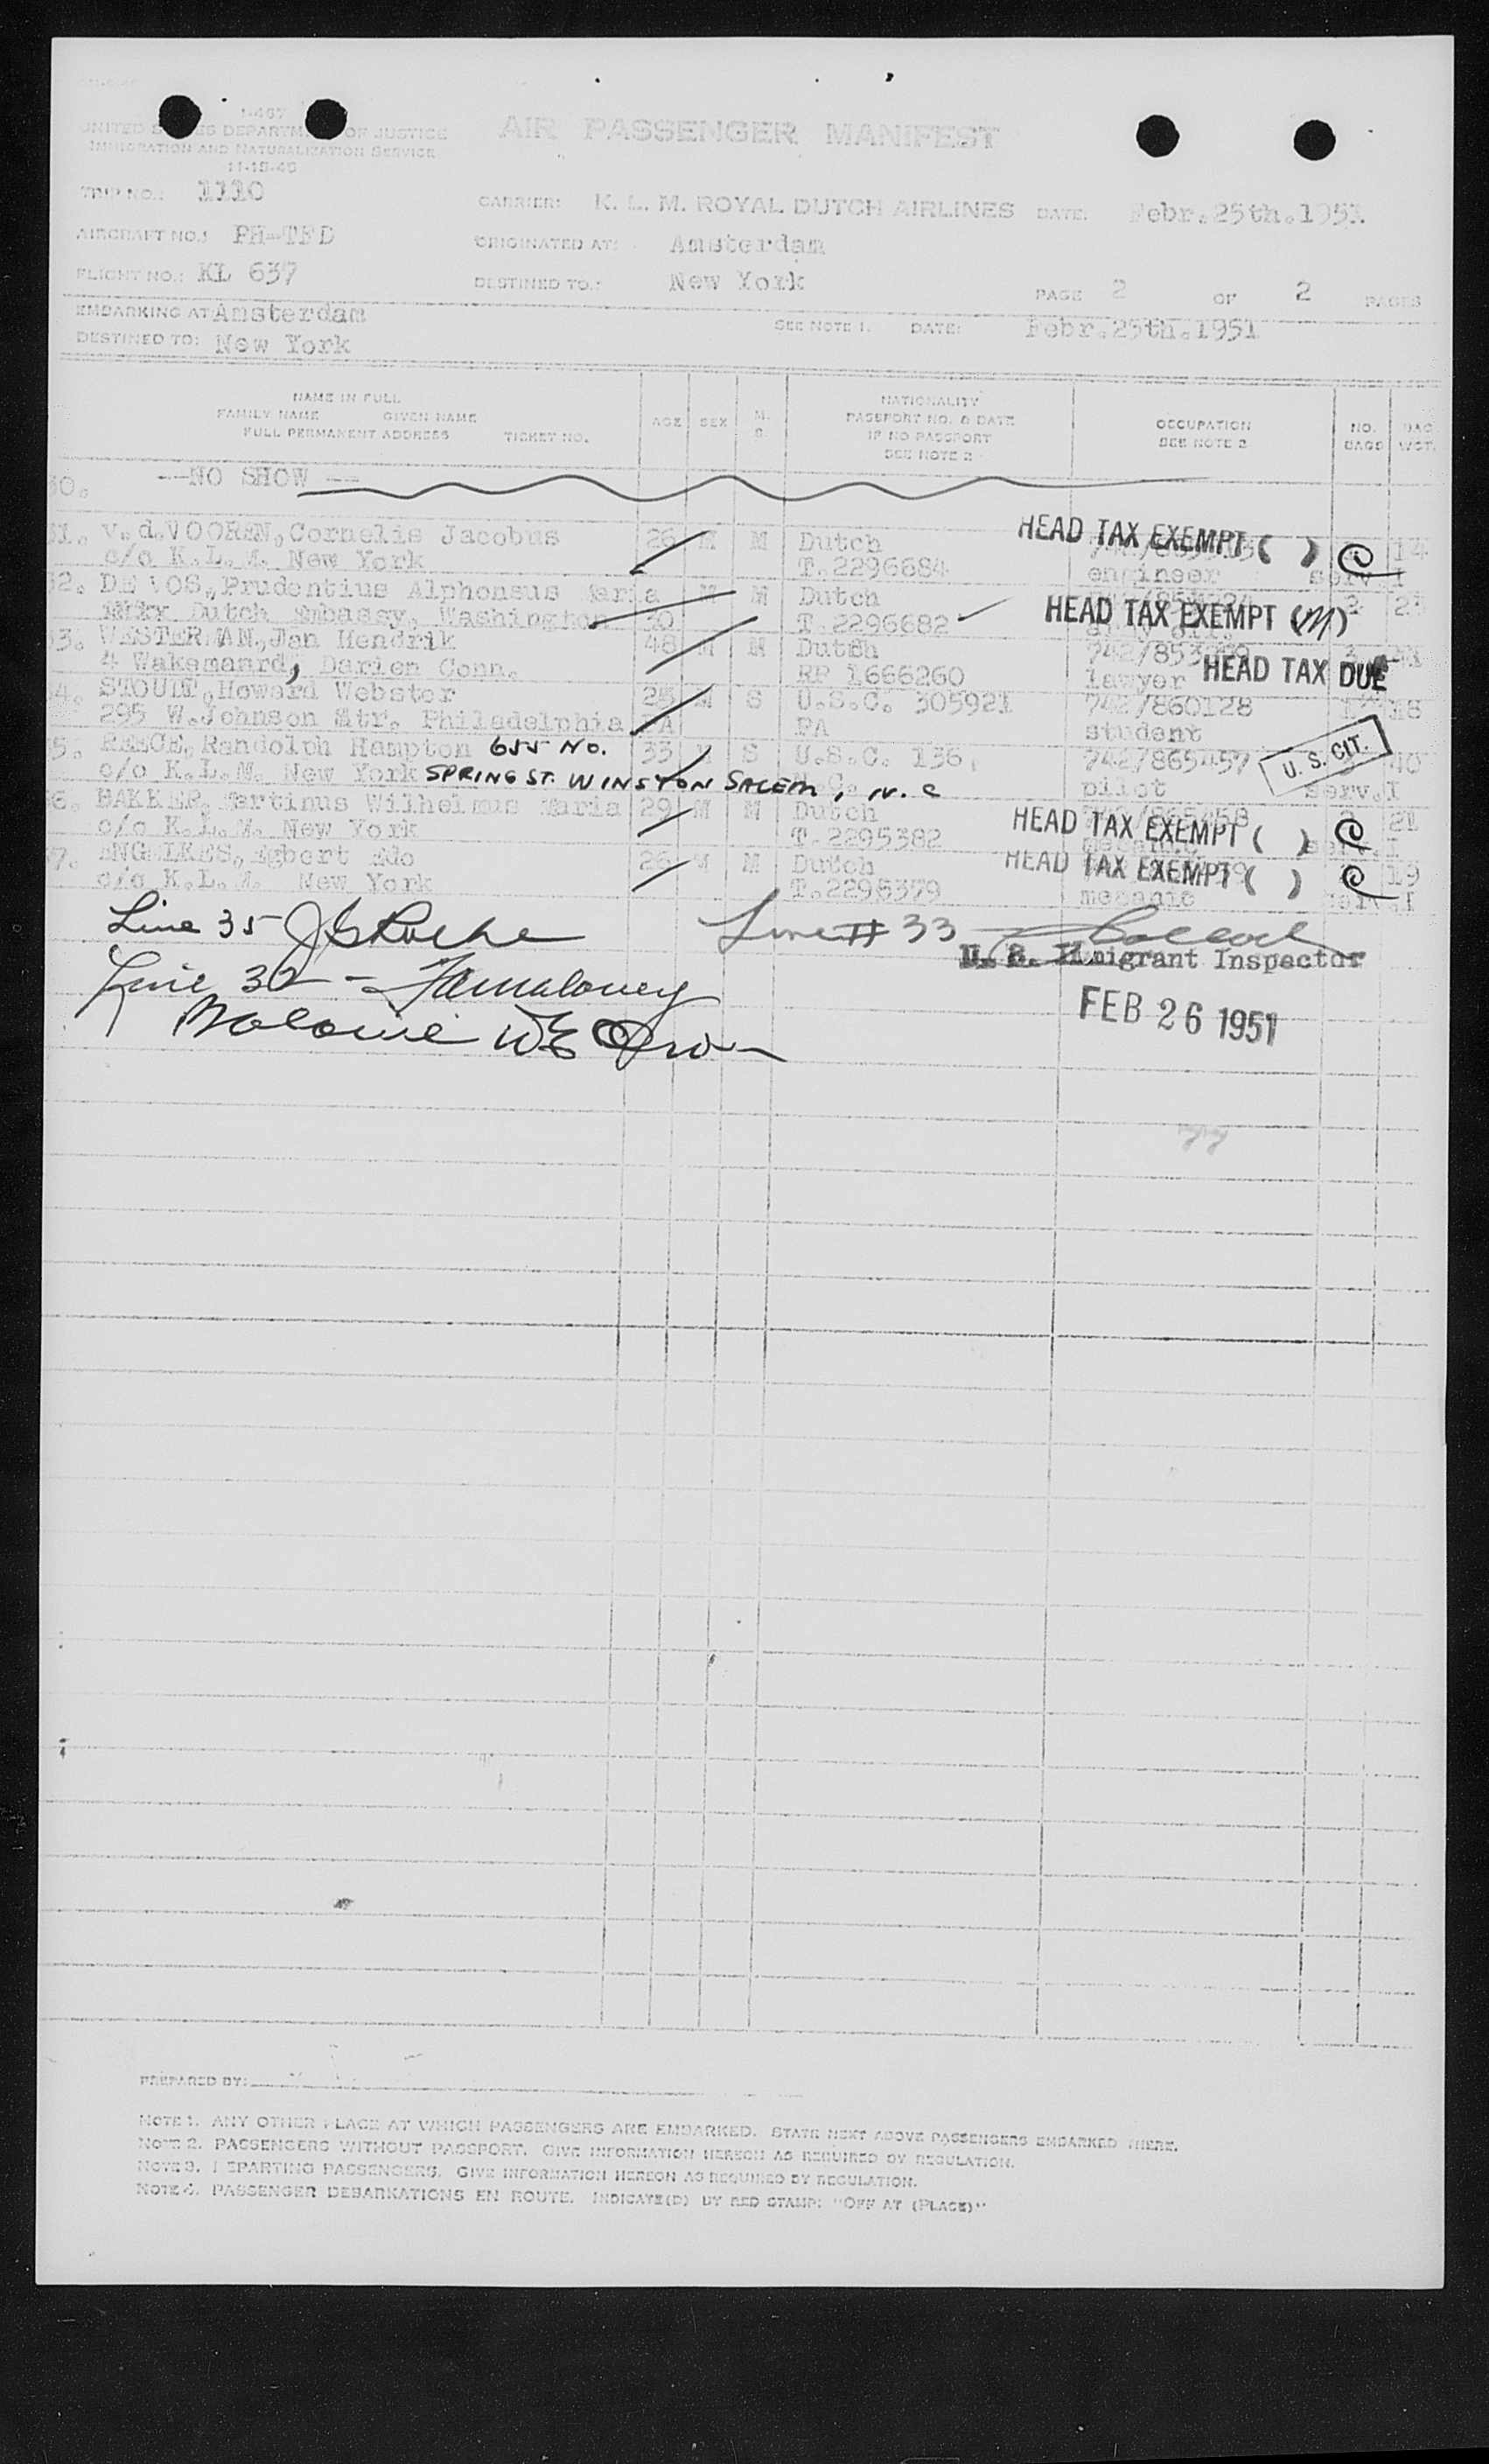 I-467
UNITED STATES DEPARTMENT OF JUSTICE
IMMIGRATION AND NATURALIZATION SERVICE
11-15-45
AIR PASSENGER MANIFEST
TRIP NO.: 1110
CARRIER: K. L. M. ROYAL DUTCH AIRLINES DATE: Febr.25th.1951
AIRCRAFT NO.: PH-TFD ORIGINATED AT: Amsterdam
FLIGHT NO.: KL 637 DESTINED TO.: New York PAGE 2 OF 2 PAGES
EMBARKING AT Amsterdam SEE NOTE 1. DATE: Febr.25th.1951
DESTINED TO: New York
NAME IN FULL
FAMILY NAME GIVEN NAME
FULL PERMANENT ADDRESS TICKET NO.
AGE SEX M. S.
NATIONALITY
PASSPORT NO. & DATE
IF NO PASSPORT
SEE NOTE 2
OCCUPATION
SEE NOTE 2
NO. BAGS
BAG WGT.
30. --NO SHOW --
31. v.d.VOOREN, Cornelis Jacobus 26 M M Dutch HEAD TAX EXEMPT ( ) 14
c/o K.L.M. New York T.2296684 engineer serv.I
32. DE VOS, Prudentius Alphonsus Maria M M Dutch 2
Dutch Embassy, Washington 30 T.2296682 HEAD TAX EXEMPT (M)
33. WESTERMAN, Jan Hendrik 48 M M Dutch 742/853
4 Wakemaard, Darien Conn. RP 1666260 lawyer HEAD TAX DUE
34. STOUDT, Howard Webster 25 M S U.S.C. 305921 742/860128 18
295 W.Johnson Str. Philadelphia PA PA student
35. REECE, Randolph Hampton 655 NO. 33 M S U.S.C. 136 742/865457 40
c/o K.L.M. New York SPRING ST. WINSTON SALEM, N.C pilot serv.I
U. S. CIT.
36. BAKKER, Martinus Wilhelmus Maria 29 M M Dutch 742/865458 21
c/o K.L.M. New York T.2295382 HEAD TAX EXEMPT ( ) serv.I
37. ENGELKES, Egbert Edo 26 M M Dutch HEAD TAX EXEMPT ( ) 19
c/o K.L.M. New York T.2295379 mecanic serv.I
Line 35 Line # 33
U. S. Immigrant Inspector
Line 32 -
FEB 26 1951
PREPARED BY:
NOTE 1. ANY OTHER PLACE AT WHICH PASSENGERS ARE EMBARKED. STATE NEXT ABOVE PASSENGERS EMBARKED THERE.
NOTE 2. PASSENGERS WITHOUT PASSPORT. GIVE INFORMATION HEREON AS REQUIRED BY REGULATION.
NOTE 3. DEPARTING PASSENGERS. GIVE INFORMATION HEREON AS REQUIRED BY REGULATION.
NOTE 4. PASSENGER DEBARKATIONS EN ROUTE. INDICATE(D) BY RED STAMP: "OFF AT (PLACE)"